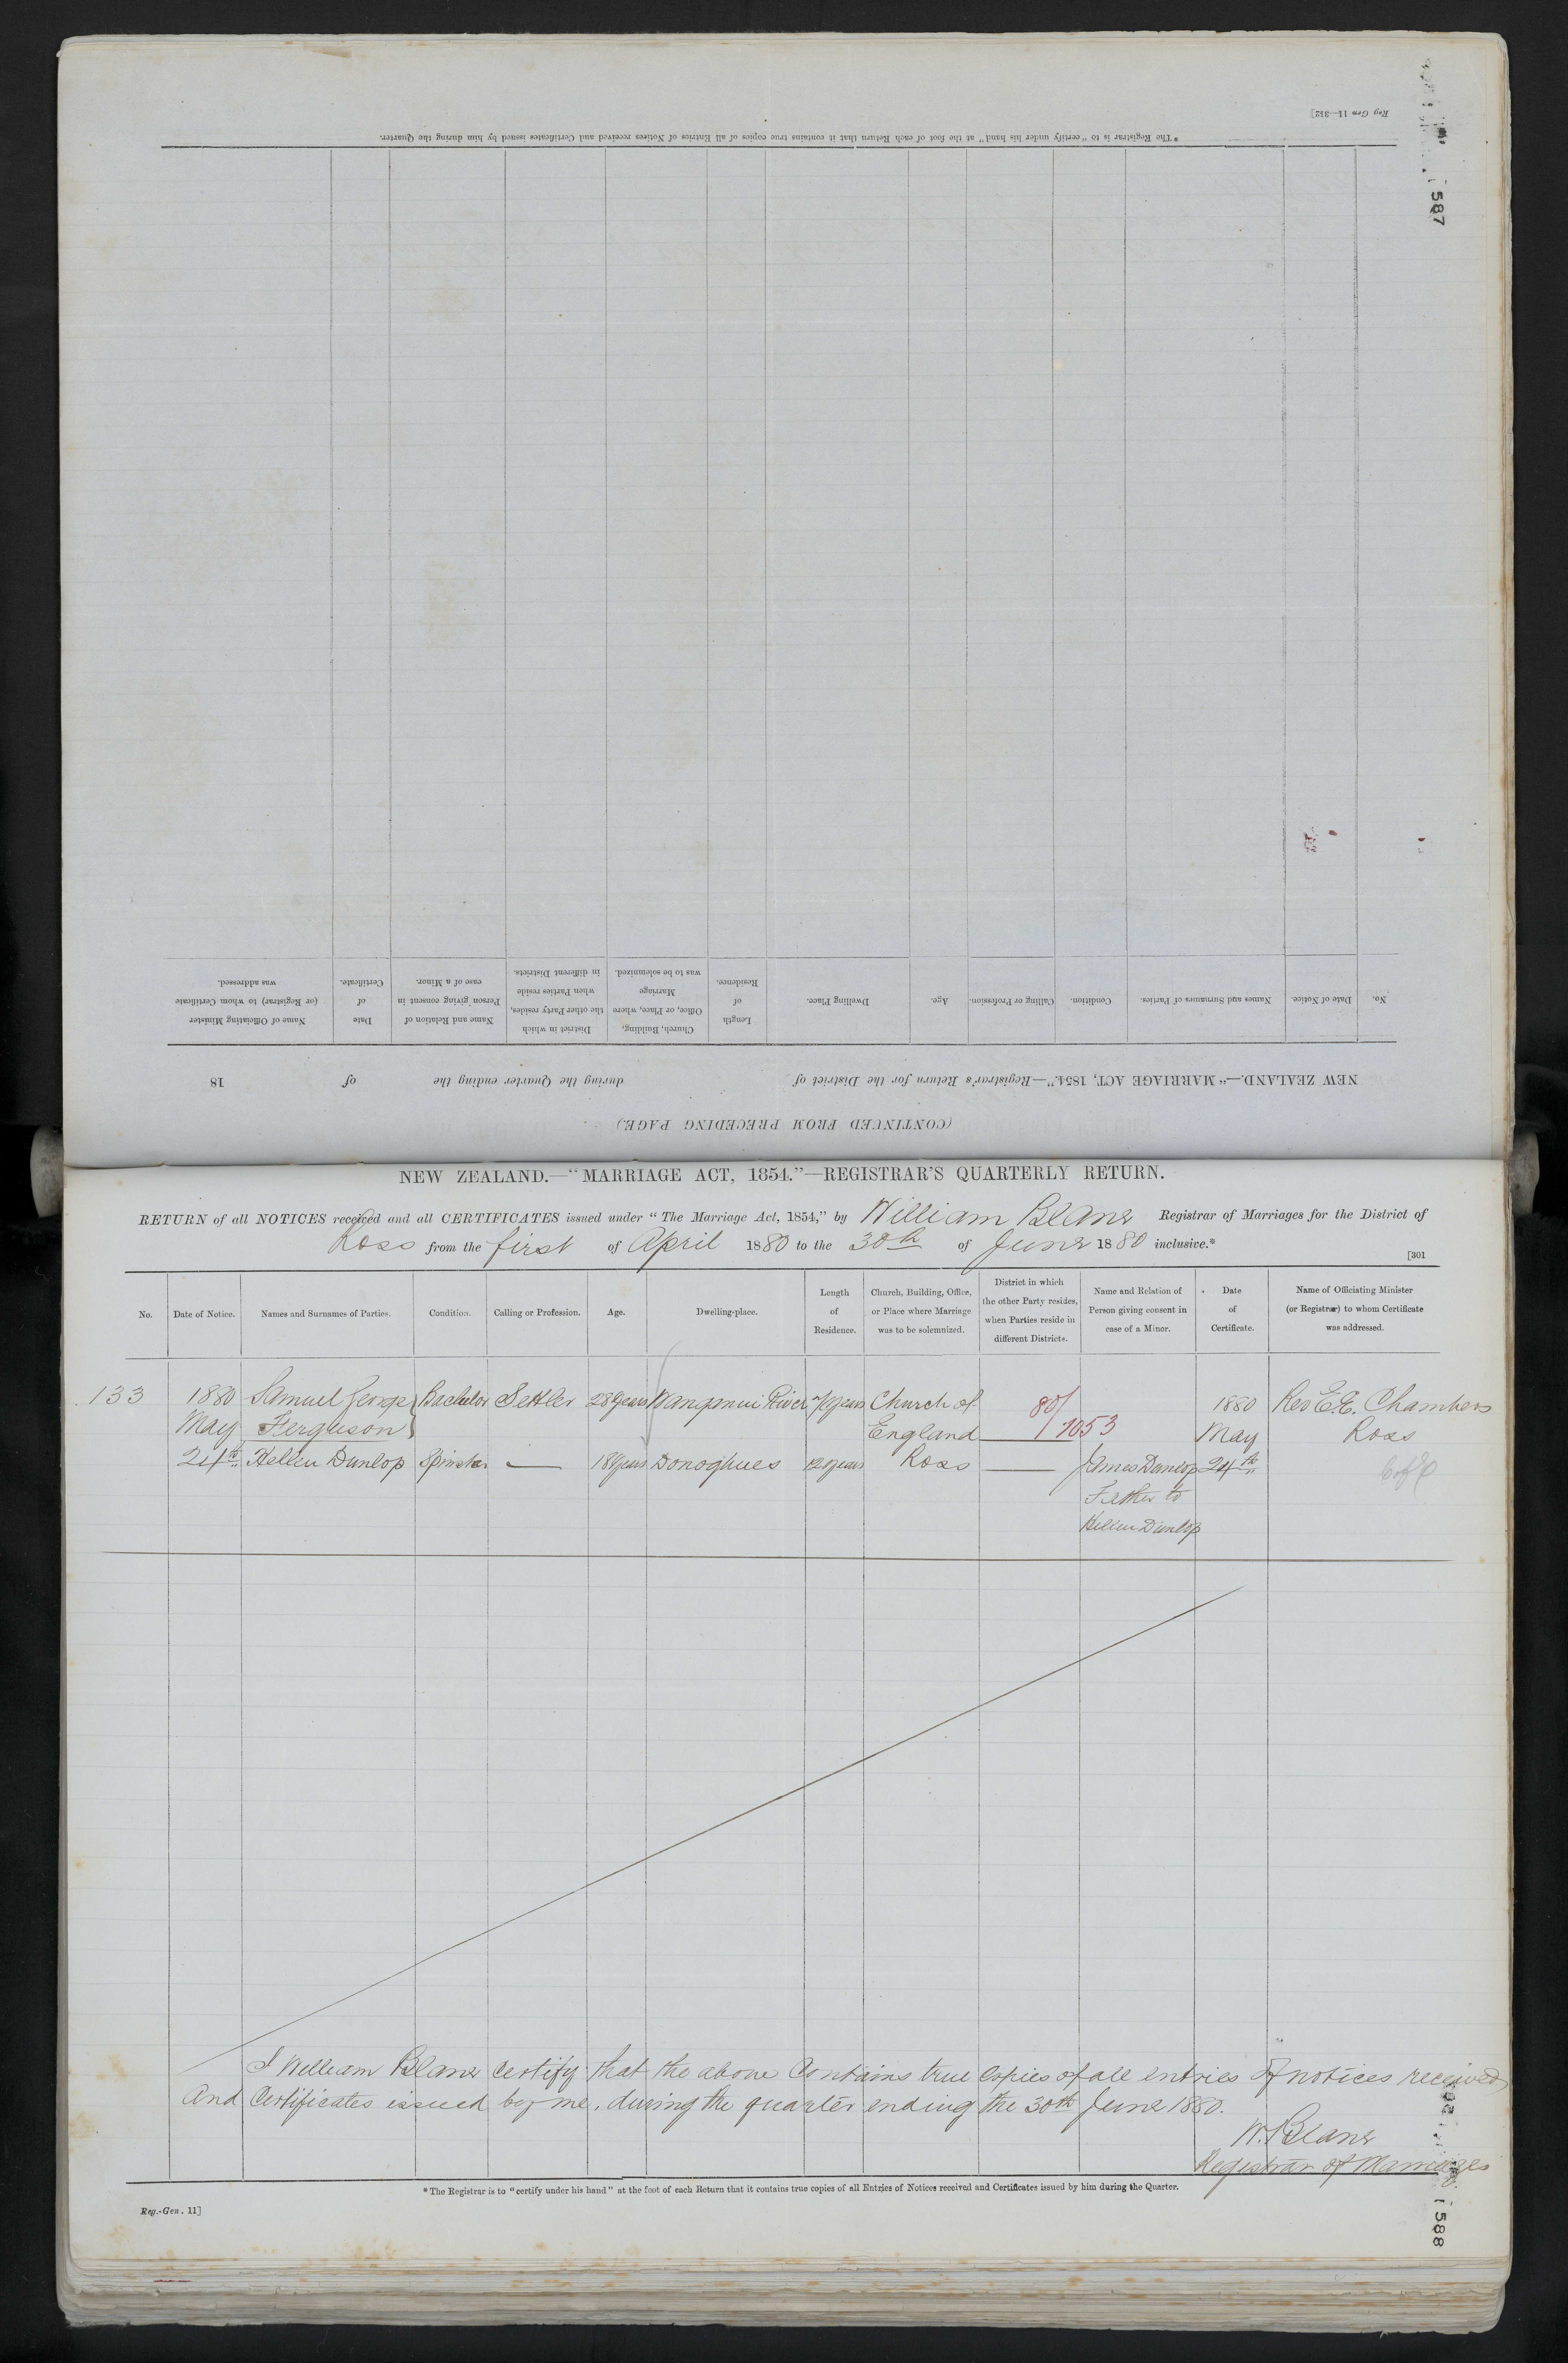 Reg Gen 11—312]
587
*The Registrar is to "certify under his hand" at the foot of each Return that it contains true copies of all Entries of Notices received and Certificates issued by him during the Quarter.
(CONTINUED FROM PRECEDING PAGE.)
NEW ZEALAND.—"MARRIAGE ACT, 1854."—Registrar's Return for the District of during the Quarter ending the of 18
No. Date of Notice. Names and Surnames of Parties. Condition. Calling or Profession. Age. Dwelling Place. Length of Residence. Church, Building, Office, or Place, where Marriage was to be solemnized. District in which the other Party resides, when Parties reside in different Districts. Name and Relation of Person giving consent in case of a Minor. Date of Certificate. Name of Officiating Minister (or Registrar) to whom Certificate was addressed.
NEW ZEALAND.—"MARRIAGE ACT, 1854."—REGISTRAR'S QUARTERLY RETURN.
RETURN of all NOTICES received and all CERTIFICATES issued under "The Marriage Act, 1854," by William Blane Registrar of Marriages for the District of
Ross from the first of April 1880 to the 30th of June 1880 inclusive.*
[301
No. Date of Notice. Names and Surnames of Parties. Condition. Calling or Profession. Age. Dwelling-place. Length of Residence. Church, Building, Office, or Place where Marriage was to be solemnized. District in which the other Party resides, when Parties reside in different Districts. Name and Relation of Person giving consent in case of a Minor. Date of Certificate. Name of Officiating Minister (or Registrar) to whom Certificate was addressed.
133 1880 Samuel George Bachelor Settler 28 years Wanganui River years Church of 80/ 1880 Rev E.E. Chambers
May Ferguson England 1053 May Ross
24th Hellen Dunlop Spinster — 18 years Donoghues 12 years Ross — James Dunlop 24th C of E
Father to
Hellen Dunlop
I William Blane certify that the above contains true copies of all entries of notices received
and Certificates issued by me, during the quarter ending the 30th June 1880.
W. Blane
Registrar of Marriages
*The Registrar is to "certify under his hand" at the foot of each Return that it contains true copies of all Entries of Notices received and Certificates issued by him during the Quarter.
Reg.-Gen. 11]
588